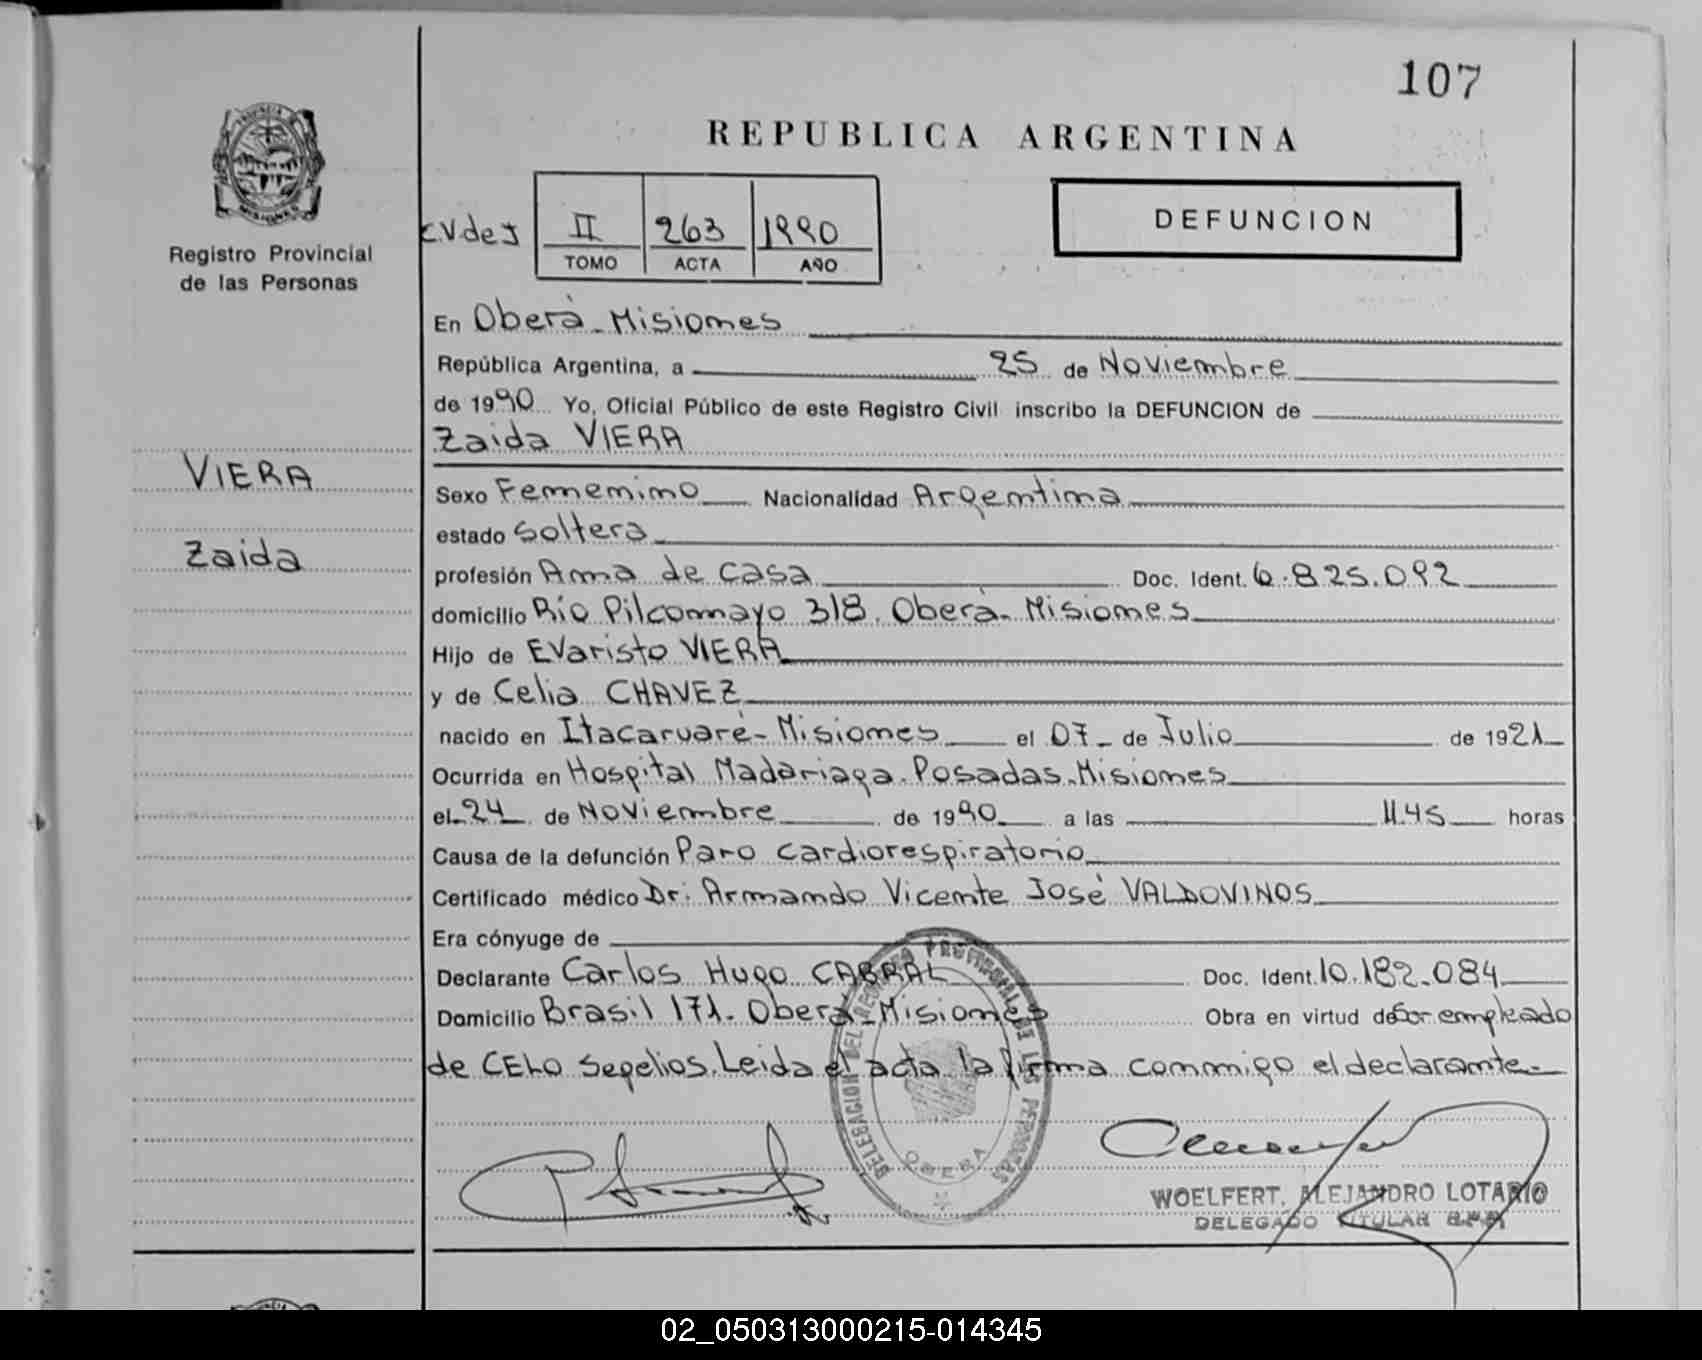 107
REPUBLICA ARGENTINA
DEFUNCION
PROVINCIA DE
MISIONES
Registro Provincial
de las Personas
C.V.de J
II 263 1990
TOMO ACTA AÑO
En Oberà - Misiones
República Argentina, a 25 de Noviembre
de 1990 Yo, Oficial Público de este Registro Civil inscribo la DEFUNCION de
Zaida VIERA
VIERA
Zaida
Sexo Femenino Nacionalidad Argentina
estado Soltera
profesión Ama de casa Doc. Ident. 6.825.092
domicilio Río Pilcomayo 318. Oberà - Misiones
Hijo de Evaristo VIERA
y de Celia CHAVEZ
nacido en Itacaruaré - Misiones el 07 de Julio de 1921
Ocurrida en Hospital Madariaga. Posadas - Misiones
el 24 de Noviembre de 1990 a las 11.45 horas
Causa de la defunción Paro cardiorespiratorio
Certificado médico Dr: Armando Vicente José VALDOVINOS
Era cónyuge de
Declarante Carlos Hugo CABRAL Doc. Ident. 10.182.084
Domicilio Brasil 171. Oberà - Misiones Obra en virtud de Ser empleado
de CELO Sepelios. Leida el acta la firma conmigo el declarante.-
DELEGACION DEL REGISTRO PROVINCIAL DE LAS PERSONAS
OBERA
WOELFERT, ALEJANDRO LOTARIO
DELEGADO TITULAR
02_050313000215-014345